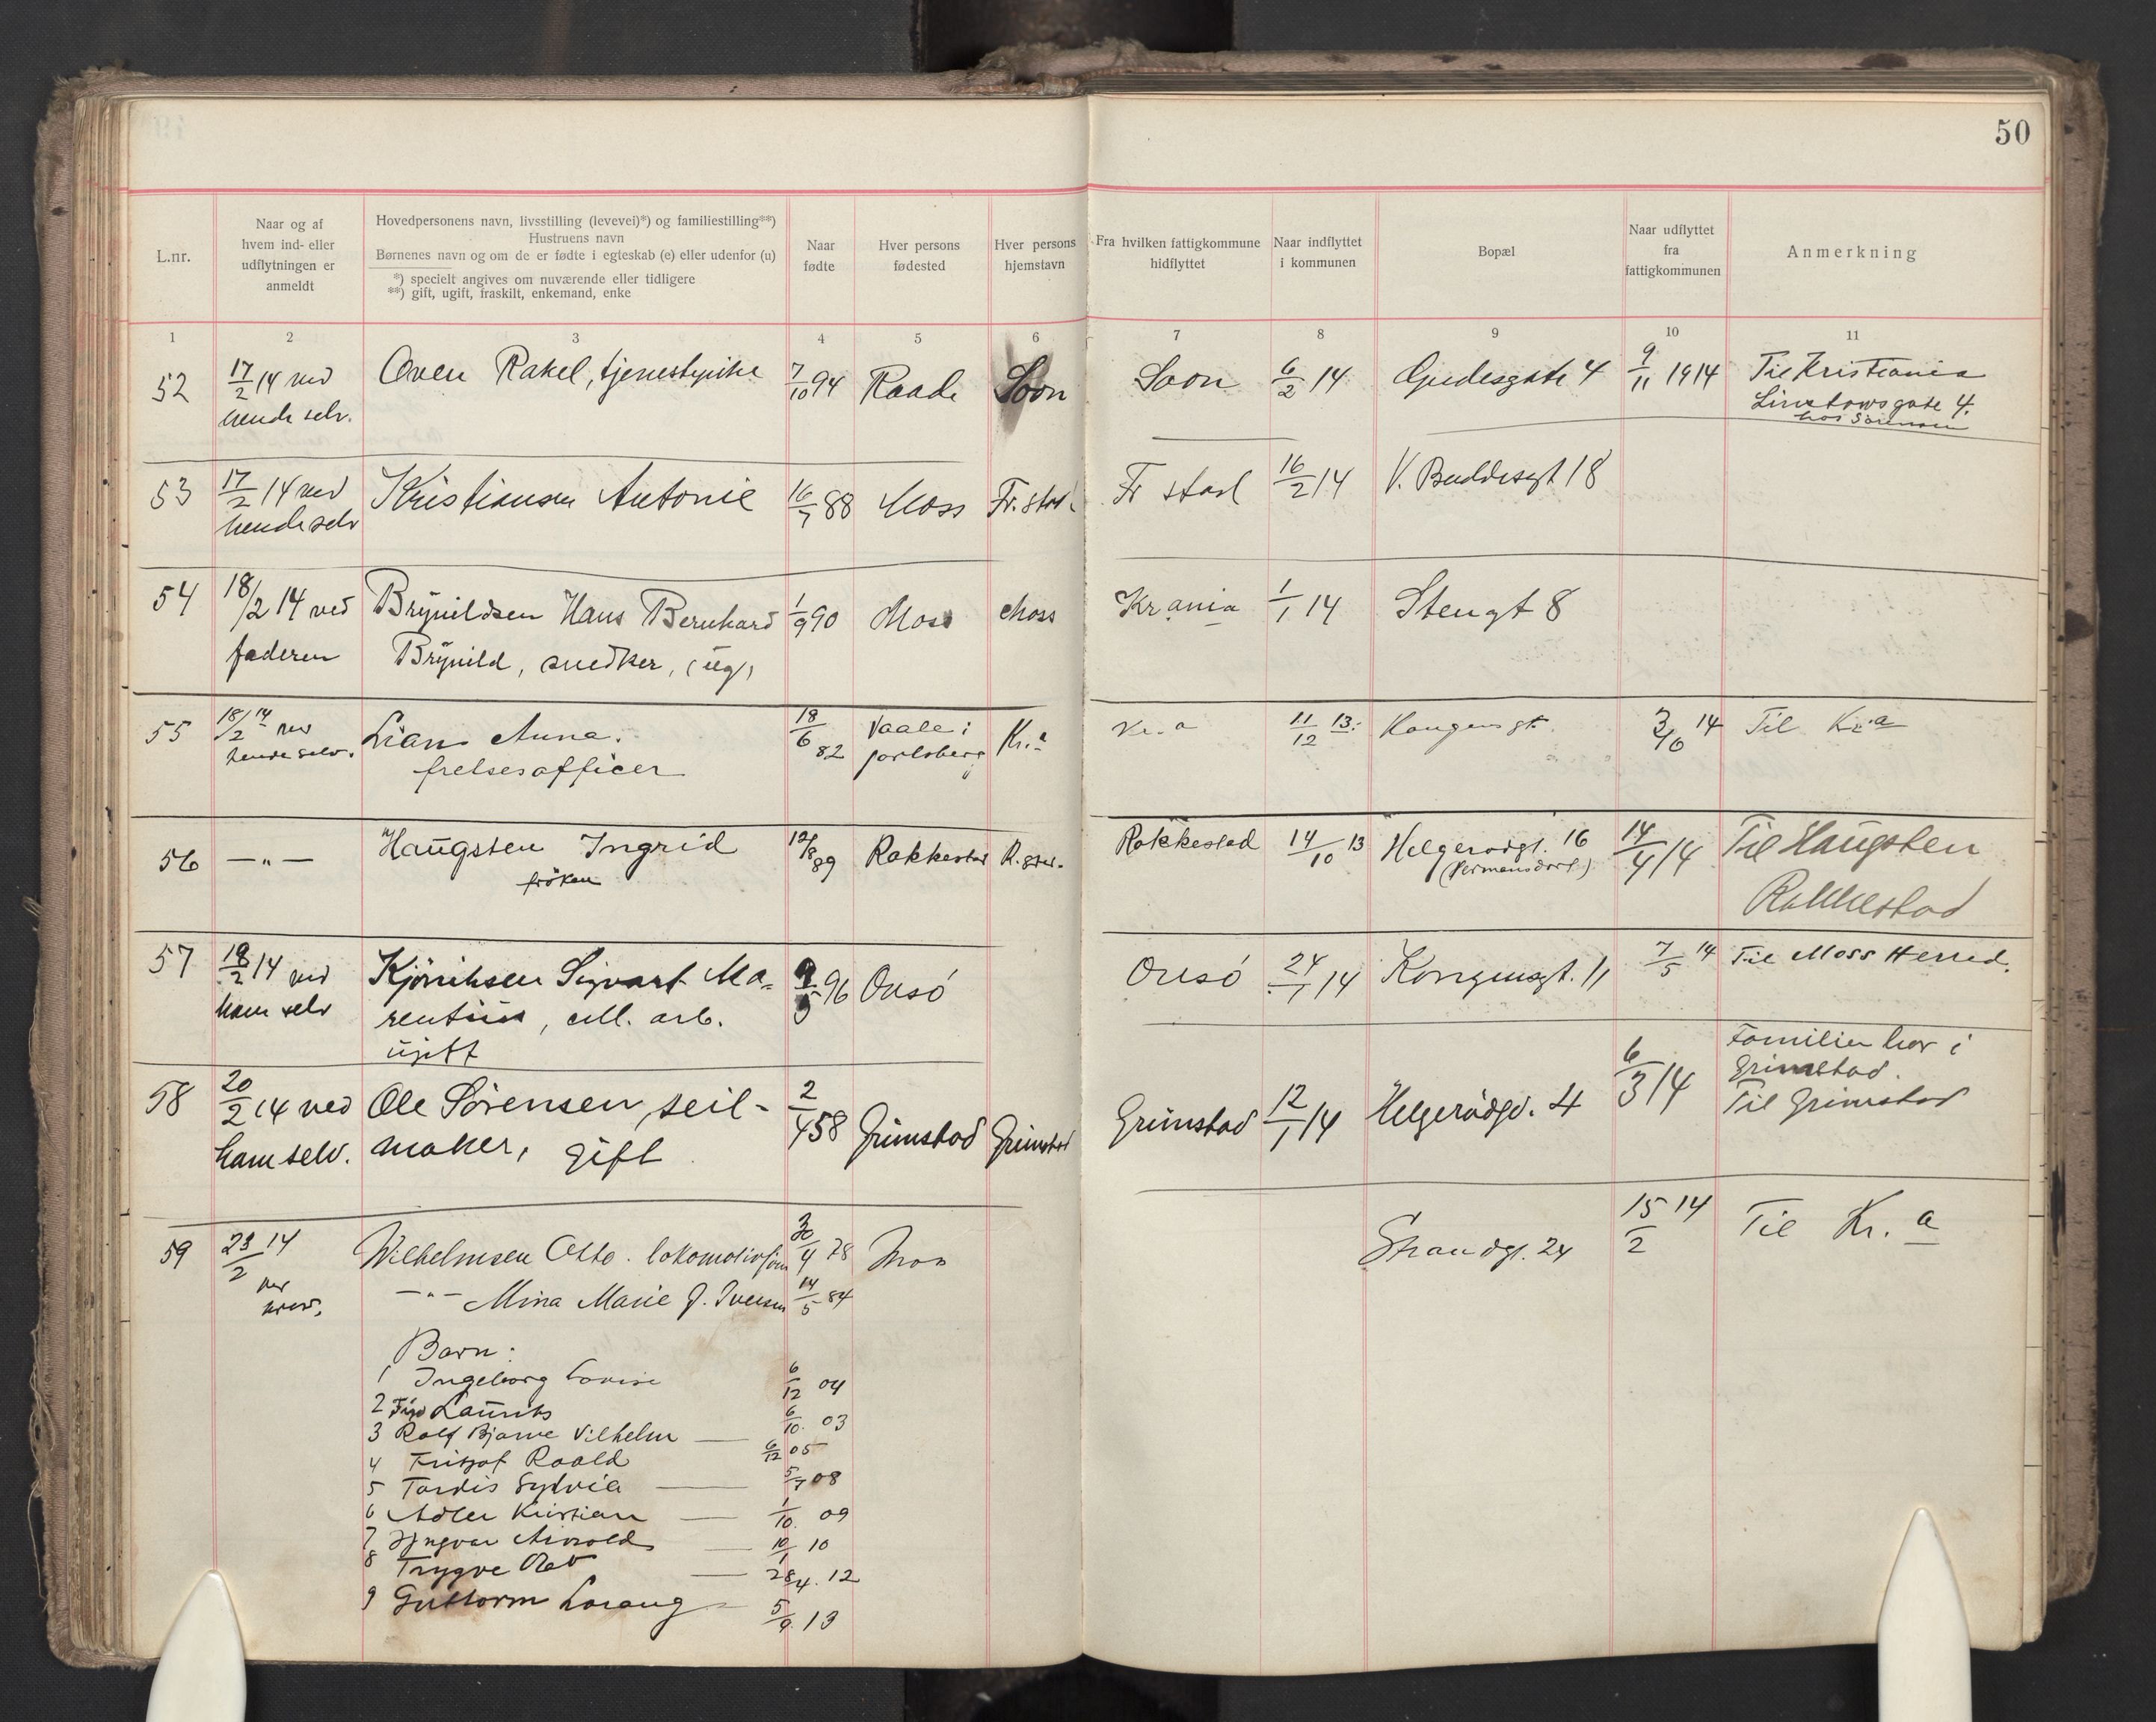 50
L.nr.
Naar og af
hvem ind- eller
udflytningen er
anmeldt
Hovedpersonens navn, livsstilling (levevei)*) og familiestilling**)
Hustruens navn
Børnenes navn og om de er fødte i egteskab (e) eller udenfor (u)
*) specielt angives om nuværende eller tidligere
**) gift, ugift, fraskilt, enkemand, enke
Naar
fødte
Hver persons
fødested
Hver persons
hjemstavn
Fra hvilken fattigkommune
hidflyttet
Naar indflyttet
i kommunen
Bopæl
Naar udflyttet
fra
fattigkommunen
Anmerkning
1 2 3 4 5 6 7 8 9 10 11
52 17/2 14 ved Oven Rakel, tjenestepike 7/10 94 Raade Soon Soon 6/2 14 Gudesgate 4 9/11 1914 Til Kristiania
hende selv. Linstowsgate 4.
hos Sörensen
53 17/2 14 ved Kristiansen Antonie 16/7 88 Moss Fr.stad Fr stad 16/2 14 V. Buddesgt 18
hende selv
54 18/2 14 ved Brynildsen Hans Bernhard 1/9 90 Moss Moss Kr ania 1/1 14 Stengt 8
faderen Brynild, snedker, (ug)
55 18/2 14 ved Lian Anna. 18/6 82 Vaale i Kr.a Kr.a 11/12 13. Kongensgt. 3/10 14 Til Kr.a
hende selv. frelsesofficer jarlsberg
56 —„— Haugsten Ingrid 12/8 89 Rakkestad R.stad. Rakkestad 14/10 13 Helgerødgt. 16 14/4 14 Til Haugsten
frøken (Hermansdorf) Rakkestad
57 18/2 14 ved Kjönihsen Sigvart Ma- 9/5 96 Onsö Onsö 24/1 14 Kongensgt. 11 7/5 14 Til Moss Herred.
ham selv rentius, cell. arb.
ugift
58 20/2 14 ved Ole Sörensen, seil- 2/4 58 Grimstad Grimstad Grimstad 12/1 14 Helgerödgd. 4 6/3 14 Familien bor i
Grimstad.
ham selv. maker, gift Til Grimstad
59 23/2 14 Wilhelmsen Otto. lokomotivfører 30/4 78 Moss Strandgt. 24 15/2 14 Til Kr.a
ved
—„— Mina Marie f. Iversen 14/5 84
Barn:
1 Ingeborg Lovise 6/12 04
2 Laurits 6/10. 03
3 Rolf Bjarne Vilhelm — 6/12 05
4 Fritjof Roald 5/7 08
5 Tordis Sylvia —
6 Adler Kristian — 1/10. 09
7 Yngvar Arnold — 10/1 10
8 Trygve Olav — 28/4. 12
9 Guttorm Lorang — 5/9. 13